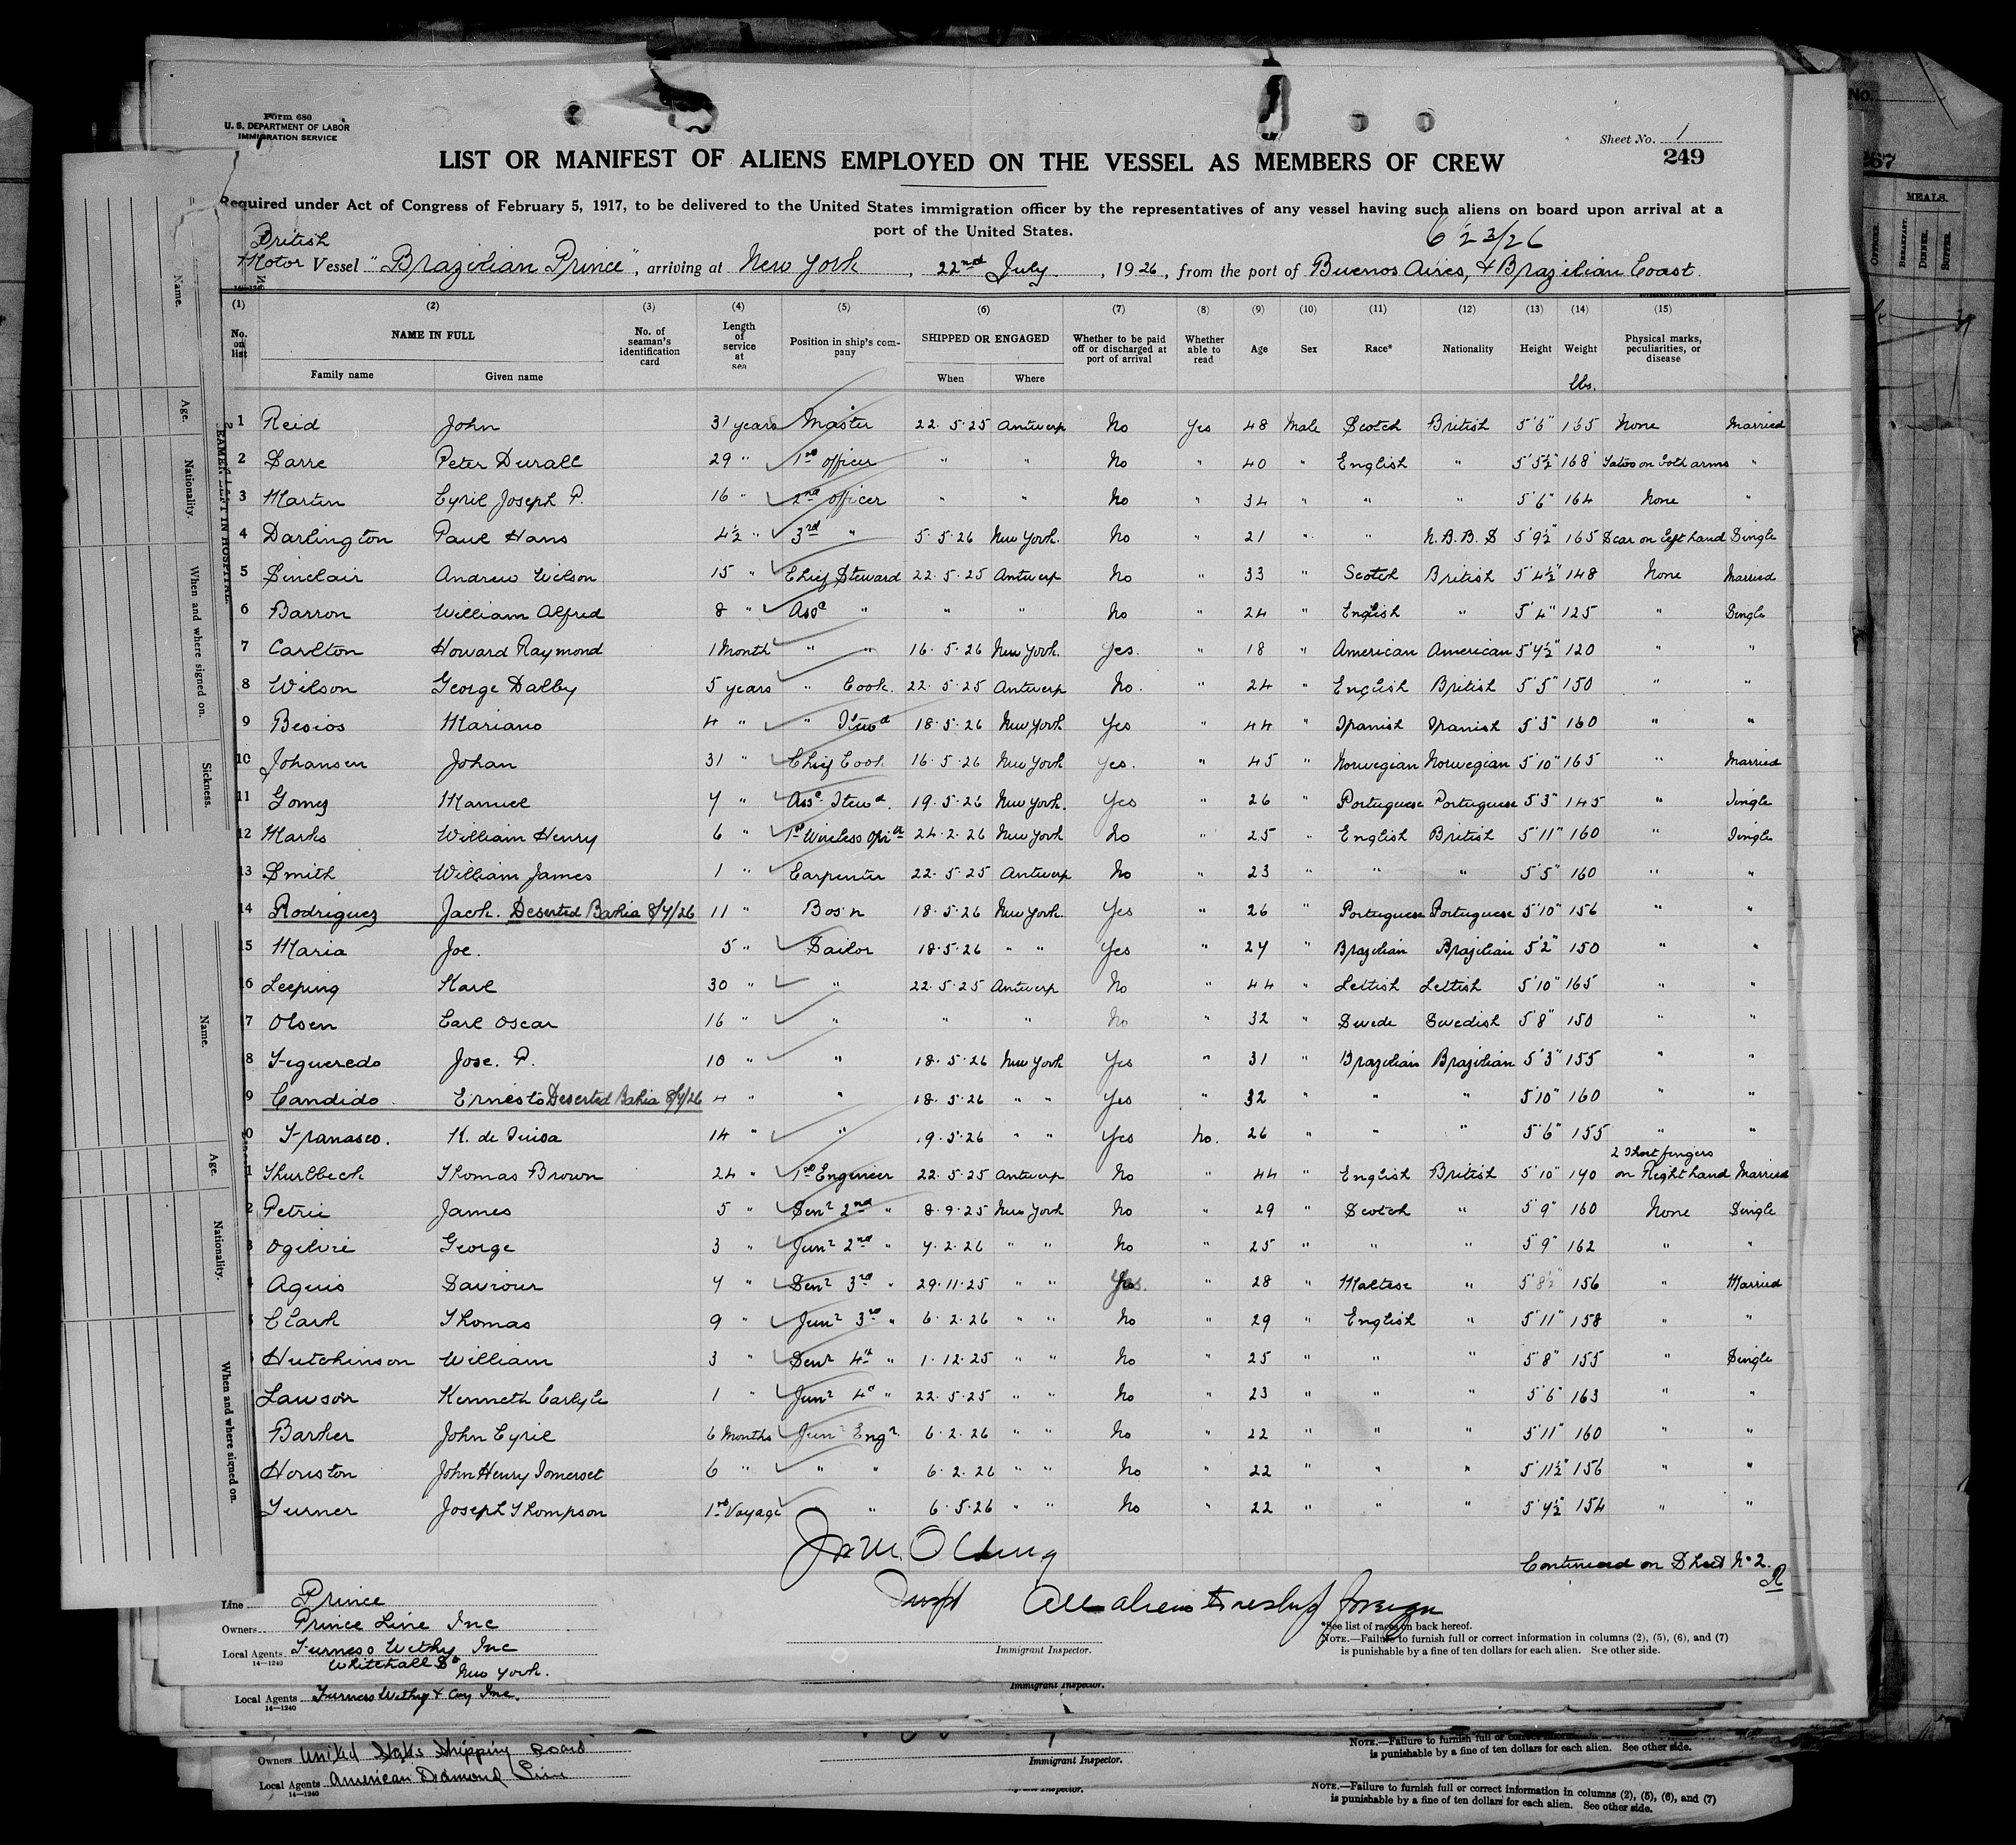 Form 680
U. S. DEPARTMENT OF LABOR
IMMIGRATION SERVICE
Sheet No. 1
249
LIST OR MANIFEST OF ALIENS EMPLOYED ON THE VESSEL AS MEMBERS OF CREW
Required under Act of Congress of February 5, 1917, to be delivered to the United States immigration officer by the representatives of any vessel having such aliens on board upon arrival at a
port of the United States.
6 23/26
British
Motor Vessel "Brazilian Prince", arriving at New York, 22nd July, 1926, from the port of Buenos Aires, & Brazilian Coast.
(1) (2) (3) (4) (5) (6) (7) (8) (9) (10) (11) (12) (13) (14) (15)
No. on list NAME IN FULL Family name Given name No. of seaman's identification card Length of service at sea Position in ship's company SHIPPED OR ENGAGED When Where Whether to be paid off or discharged at port of arrival Whether able to read Age Sex Race* Nationality Height Weight Physical marks, peculiarities, or disease
lbs.
1 Reid John 31 years Master 22.5.25 Antwerp No Yes 48 Male Scotch British 5'6" 165 None Married
2 Sarre Peter Durall 29 " 1st officer " " No " 40 " English " 5'5½" 168 Tatoo on both arms "
3 Martin Cyril Joseph P. 16 " 2nd officer " " No " 34 " " " 5'6" 164 None "
4 Darlington Paul Hans 4½ " 3rd " 5.5.26 New York. No " 21 " " N.B.B.S 5'9½" 165 Scar on left hand Single
5 Sinclair Andrew Wilson 15 " Chief Steward 22.5.25 Antwerp No " 33 " Scotch British 5'4½" 148 None Married
6 Barron William Alfred 8 " Asst " " " No " 24 " English " 5'4" 125 " Single
7 Carlton Howard Raymond 1 Month " " 16.5.26 New York. Yes. " 18 " American American 5'7½" 120 " "
8 Wilson George Dalby 5 years " Cook. 22.5.25 Antwerp No. " 24 " English British 5'5" 150 " "
9 Besios Mariano 4 " " Stewd 18.5.26 New York Yes " 44 " Spanish Spanish 5'3" 160 " "
10 Johansen Johan 31 " Chief Cook 16.5.26 New York Yes. " 45 " Norwegian Norwegian 5'10" 165 " Married
11 Gomez Manuel 7 " Asst Stewd. 19.5.26 New York. Yes " 26 " Portuguese Portuguese 5'3" 145 " Single
12 Marks William Henry 6 " 1st Wireless Optr 24.2.26 New York No " 25 " English British 5'11" 160 " Single
13 Smith William James 1 " Carpenter 22.5.25 Antwerp No " 23 " " " 5'5" 160 " "
14 Rodriguez Jack. Deserted Bahia 8/7/26 11 " Bos'n 18.5.26 New York. Yes " 26 " Portuguese Portuguese 5'10" 156 " "
15 Maria Joe. 5 " Sailor 18.5.26 " " Yes " 27 " Brazilian Brazilian 5'2" 150 " "
16 Leeping Karl 30 " " 22.5.25 Antwerp No " 44 " Lettish Lettish 5'10" 165 " "
7 Olsen Earl Oscar 16 " " " " No " 32 " Swede Swedish 5'8" 150 " "
8 Figueredo Jose. P. 10 " " 18.5.26 New York Yes " 31 " Brazilian Brazilian 5'3" 155 " "
9 Candido. Ernesto Deserted Bahia 8/7/26 4 " " 18.5.26 " " Yes " 32 " " " 5'10" 160 " "
0 K. de 14 " " 19.5.26 " " Yes No. 26 " " " 5'6" 155 " "
1 Thurlbeck Thomas Brown 24 " 1st Engineer 22.5.25 Antwerp No " 44 " English British 5'10" 170 2 Short fingers on Right hand Married
2 Petrie James 5 " Senr 2nd " 8.9.25 New York No " 29 " Scotch " 5'9" 160 None Single
3 Ogilvie George 3 " Junr 2nd " 7.2.26 " " No " 25 " " " 5'9" 162 " "
Agius Saviour 7 " Senr 3rd " 29.11.25 " " Yes. " 28 " Maltese " 5'8½" 156 " Married
Clark Thomas 9 " Junr 3rd " 6.2.26 " " No " 29 " English " 5'11" 158 " "
Hutchinson William 3 " Senr 4th " 1.12.25 " " No " 25 " " " 5'8" 155 " Single
Lawson Kenneth Carlyle 1 " Junr 4th " 22.5.25 " " No " 23 " " " 5'6" 163 " "
Barker John Cyril 6 Months Junr Engr. 6.2.26 " " No " 22 " " " 5'11" 160 " "
Houston John Henry Somerset 6 " " " 6.2.26 " " No " 22 " " " 5'11½" 156 " "
Turner Joseph Thompson 1st Voyage " 6.5.26 " " No " 22 " " " 5'7½" 154 " "
Continued on Sheet No 2.
R
All aliens foreign
Line Prince
Owners Prince Line Inc
Local Agents Furness Withy Inc
14—1240
Whitehall St New York.
Immigrant Inspector.
*See list of races on back hereof.
NOTE.—Failure to furnish full or correct information in columns (2), (5), (6), and (7)
is punishable by a fine of ten dollars for each alien. See other side.
Local Agents Furness Withy & Coy Inc.
14—1240
Immigrant Inspector.
Owners United States Shipping Board
Local Agents American Diamond Line
14—1240
Immigrant Inspector.
NOTE.—Failure to furnish full or correct information
is punishable by a fine of ten dollars for each alien. See other side.
NOTE.—Failure to furnish full or correct information in columns (2), (5), (6), and (7)
is punishable by a fine of ten dollars for each alien. See other side.
Name.
Age.
Nationality.
When and where signed on.
Sickness.
LEFT IN HOSPITAL.
Name.
Age.
Nationality.
When and where signed on.
No.
267
MEALS.
OFFICER.
BREAKFAST.
DINNER.
SUPPER.